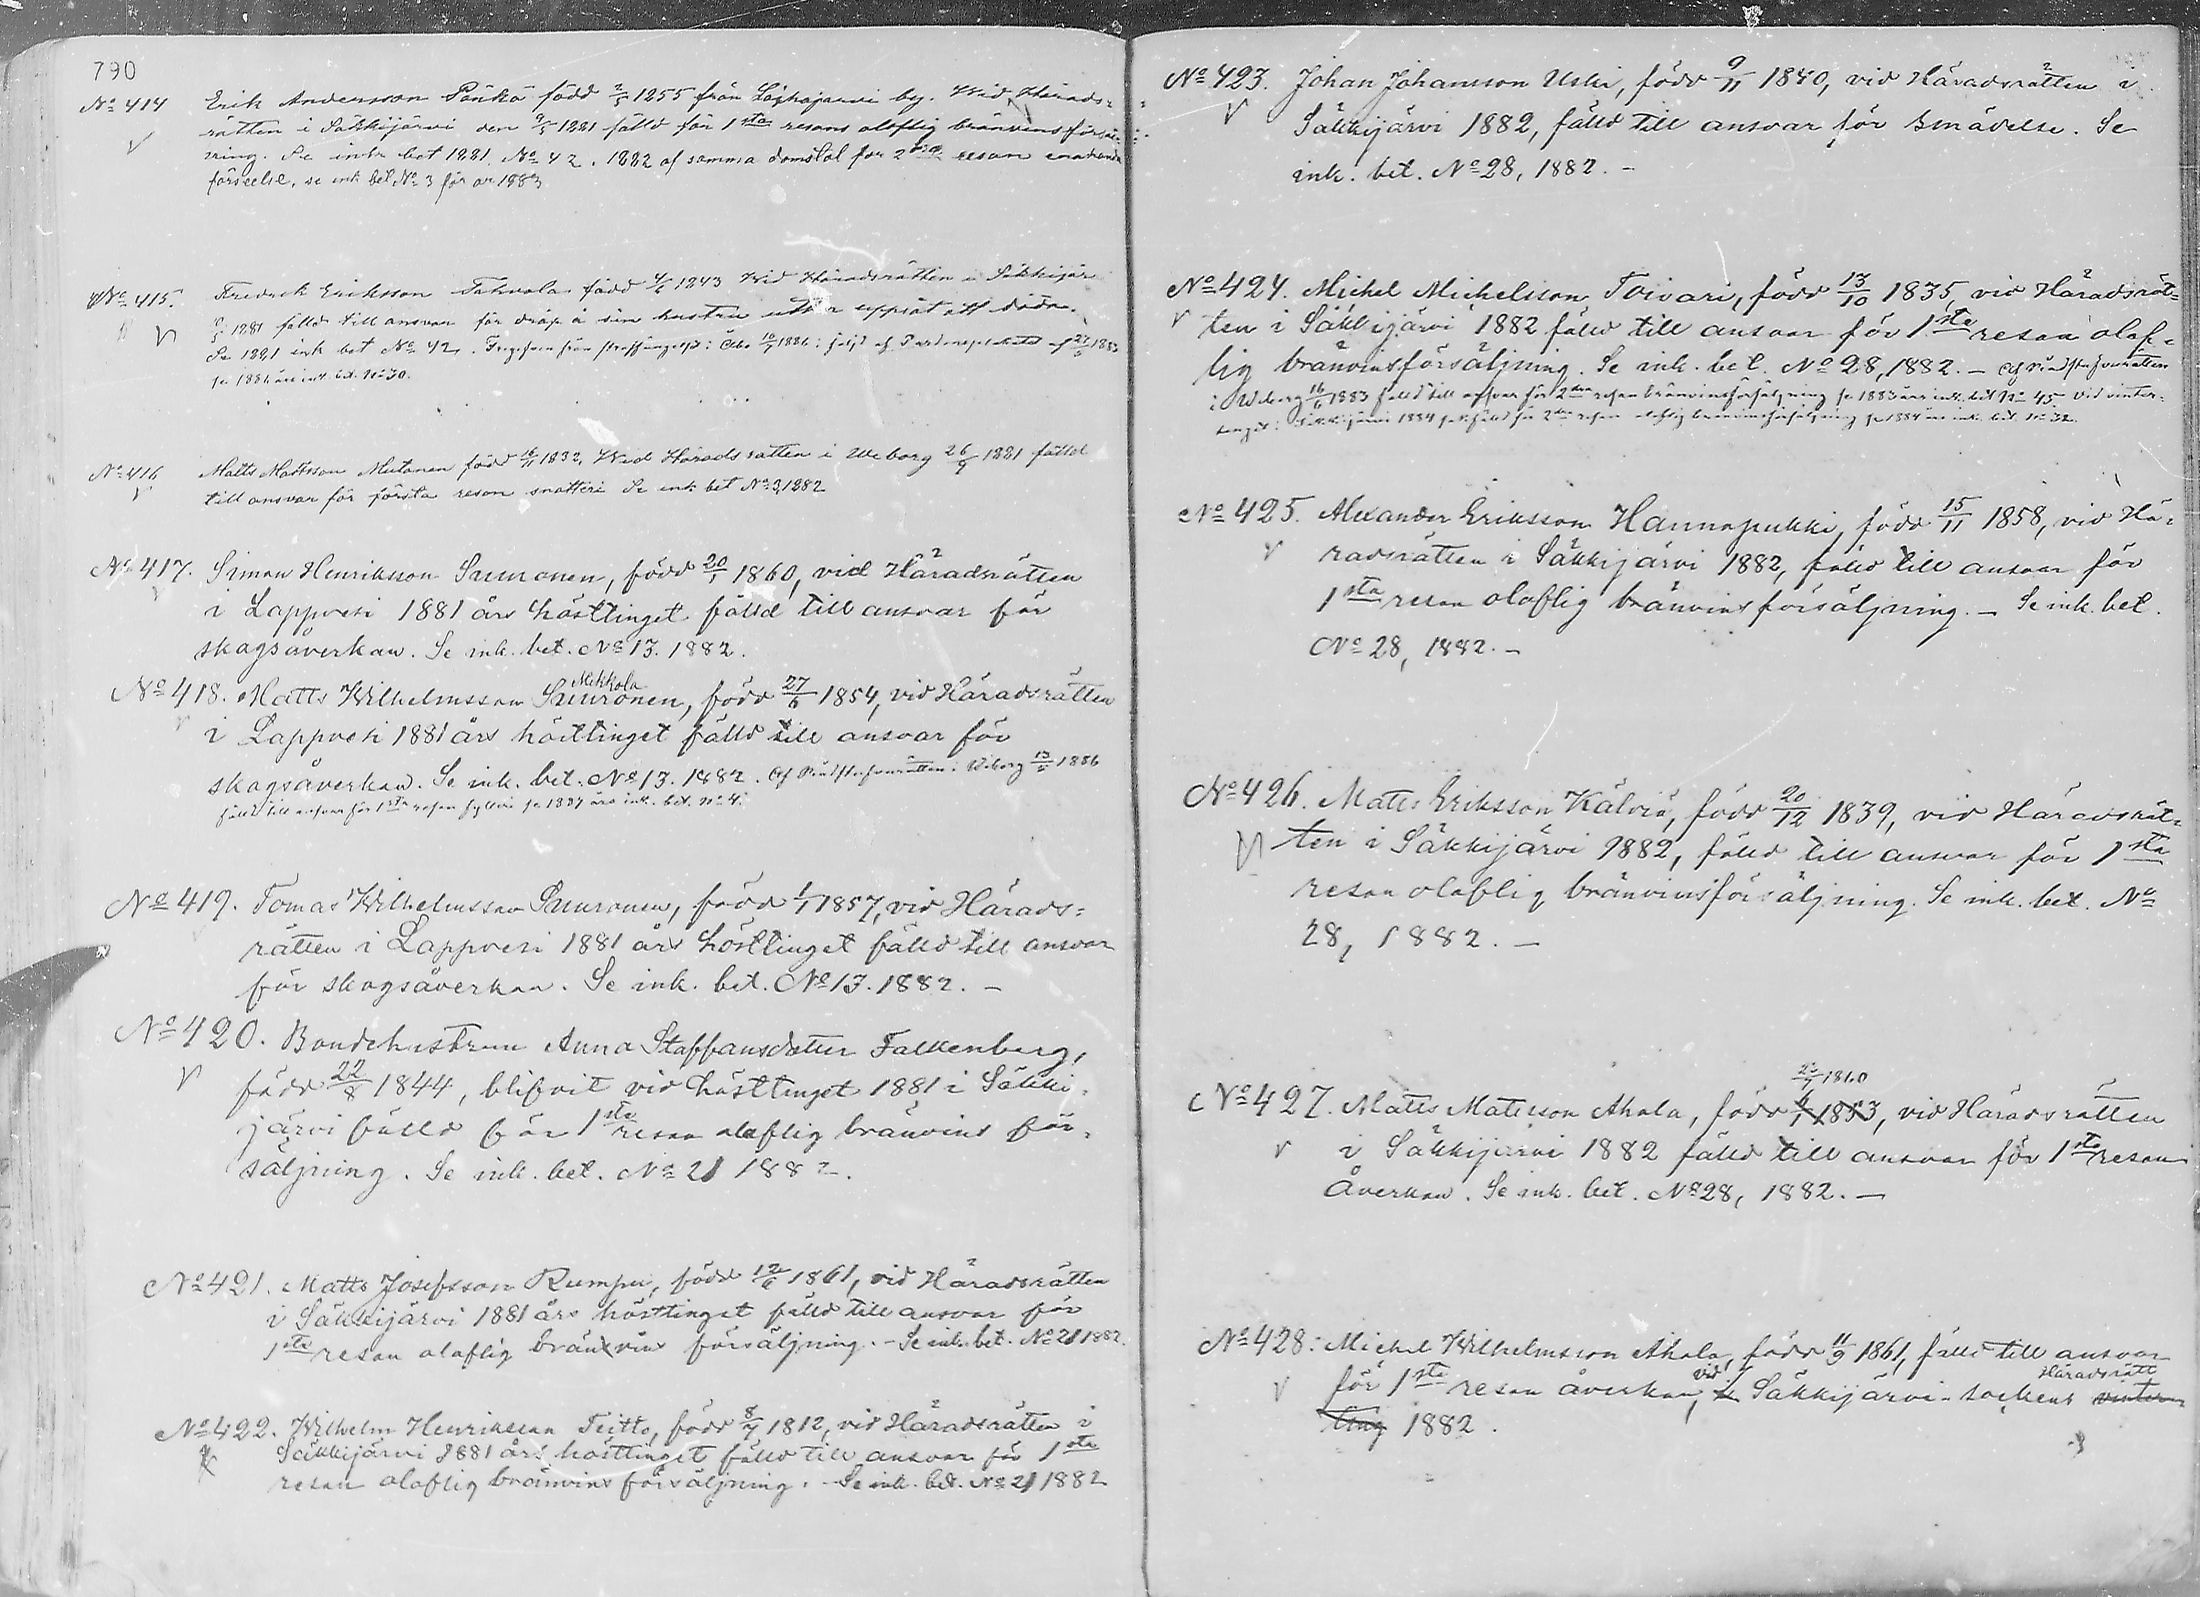 790
No 414 Erik Andersson Pörkö född 2/5 1855 från Laihajärvi by. Wid Härads-
rätten i Säkkijärvi den 9/5 1881 fälld för 1sta resans olaflig bränvinsförsäl-
jning. Se ink bet 1881. No 42. 1882 af samma domstol för 2dra resan enahanda
förseelse, se ink bet. No 3 för år 1883
No 415. Fredrik Eriksson Takvola född 4/6 1843 Wid Häradsrätten i Säkkijär
1881 fälld till ansvar för dråp å sin hustru utan uppsåt att döda.
Se 1881 ink bet No 42. från 1886
se 1886 års ink. bet. No 30.
No 416 Matts Mattsson Mutanen född 1832. Wid Häradsrätten i Wiborg 26/9 1881 fälld
till ansvar för första resan snatteri Se ink bet No 3, 1882
No 417. Simon Henriksson Suuronen, född 20/1 1860, vid Häradsrätten
i Lappvesi 1881 års hösttinget fälld till ansvar för
skogsåverkan. Se ink. bet. No 13. 1882.
Mikkola
No 418. Matts Wilhelmsson Suuronen, född 27/6 1854, vid Häradsrätten
i Lappvesi 1881 års hösttinget fälld till ansvar för
skogsåverkan. Se ink. bet. No 13. 1882. Af Rådstufvurätten i Wiborg 13/5 1886
fälld till ansvar för 1sta resan fylleri se 1887 års ink. bet. No 4.
No 419. Tomas Wilhelmsson Suuronen, född 1/1 1857, vid Härads-
rätten i Lappvesi 1881 års hösttinget fälld till ansvar
för skogsåverkan. Se ink. bet. No 13. 1882. –
No 420. Bondehustrun Anna Staffansdotter Falkenberg,
född 22/8 1844, blifvit vid hösttinget 1881 i Säkki-
järvi fälld för 1sta resan olaflig bränvins för-
säljning. Se ink. bet. No 21 1882.
No 421. Matts Josefsson Rumpu, född 12/6 1861, vid Häradsrätten
i Säkkijärvi 1881 års hösttinget fälld till ansvar för
1sta resan olaflig bränvins försäljning. – Se ink. bet. No 21 1882.
No 422. Wilhelm Henriksson Teitto, född 8/7 1812, vid Häradsrätten i
Säkkijärvi 1881 års hösttinget fälld till ansvar för 1sta
resan olaflig bränvins försäljning. – Se ink. bet. No 21 1882
No 423. Johan Johansson Uski, född 9/11 1840, vid Häradsrätten i
Säkkijärvi 1882, fälld till ansvar för smädelse. Se
ink. bet. No 28, 1882. –
No 424. Michel Michelsson Toivari, född 13/10 1835, vid Häradsrät-
ten i Säkkijärvi 1882 fälld till ansvar för 1sta resan olaf-
lig bränvinsförsäljning. Se ink. bet. No 28, 1882. – Af Rådstufvurätten
i Wiborg 16/6 1883 fälld till ansvar för 2dra resan bränvinsförsäljning se 1883 års ink. bet No 45. Vid vinter-
tinget i Säkkijärvi 1884 fälld för 2dra resan olaflig bränvinsförsäljning se 1884 års ink. bet. No 32.
No 425. Alexander Eriksson Hannapukki, född 15/11 1858, vid Hä-
radsrätten i Säkkijärvi 1882, fälld till ansvar för
1sta resan olaflig bränvins försäljning. – Se ink. bet.
No 28, 1882. –
No 426. Matts Eriksson Kälviä, född 20/12 1839, vid Häradsrät-
ten i Säkkijärvi 1882, fälld till ansvar för 1sta
resan olaflig bränvinsförsäljning. Se ink. bet. No
28, 1882. –
1860
No 427. Matts Matsson Ahola, född 1853, vid Häradsrätten
i Säkkijärvi 1882 fälld till ansvar för 1sta resan
Åverkan. Se ink. bet. No 28, 1882. –
No 428. Michel Wilhelmsson Ahola, född 11/9 1861, fälld till ansvar
för 1sta resan åverkan, vid Säkkijärvi sockens Häradsrätt vintern
ting 1882.